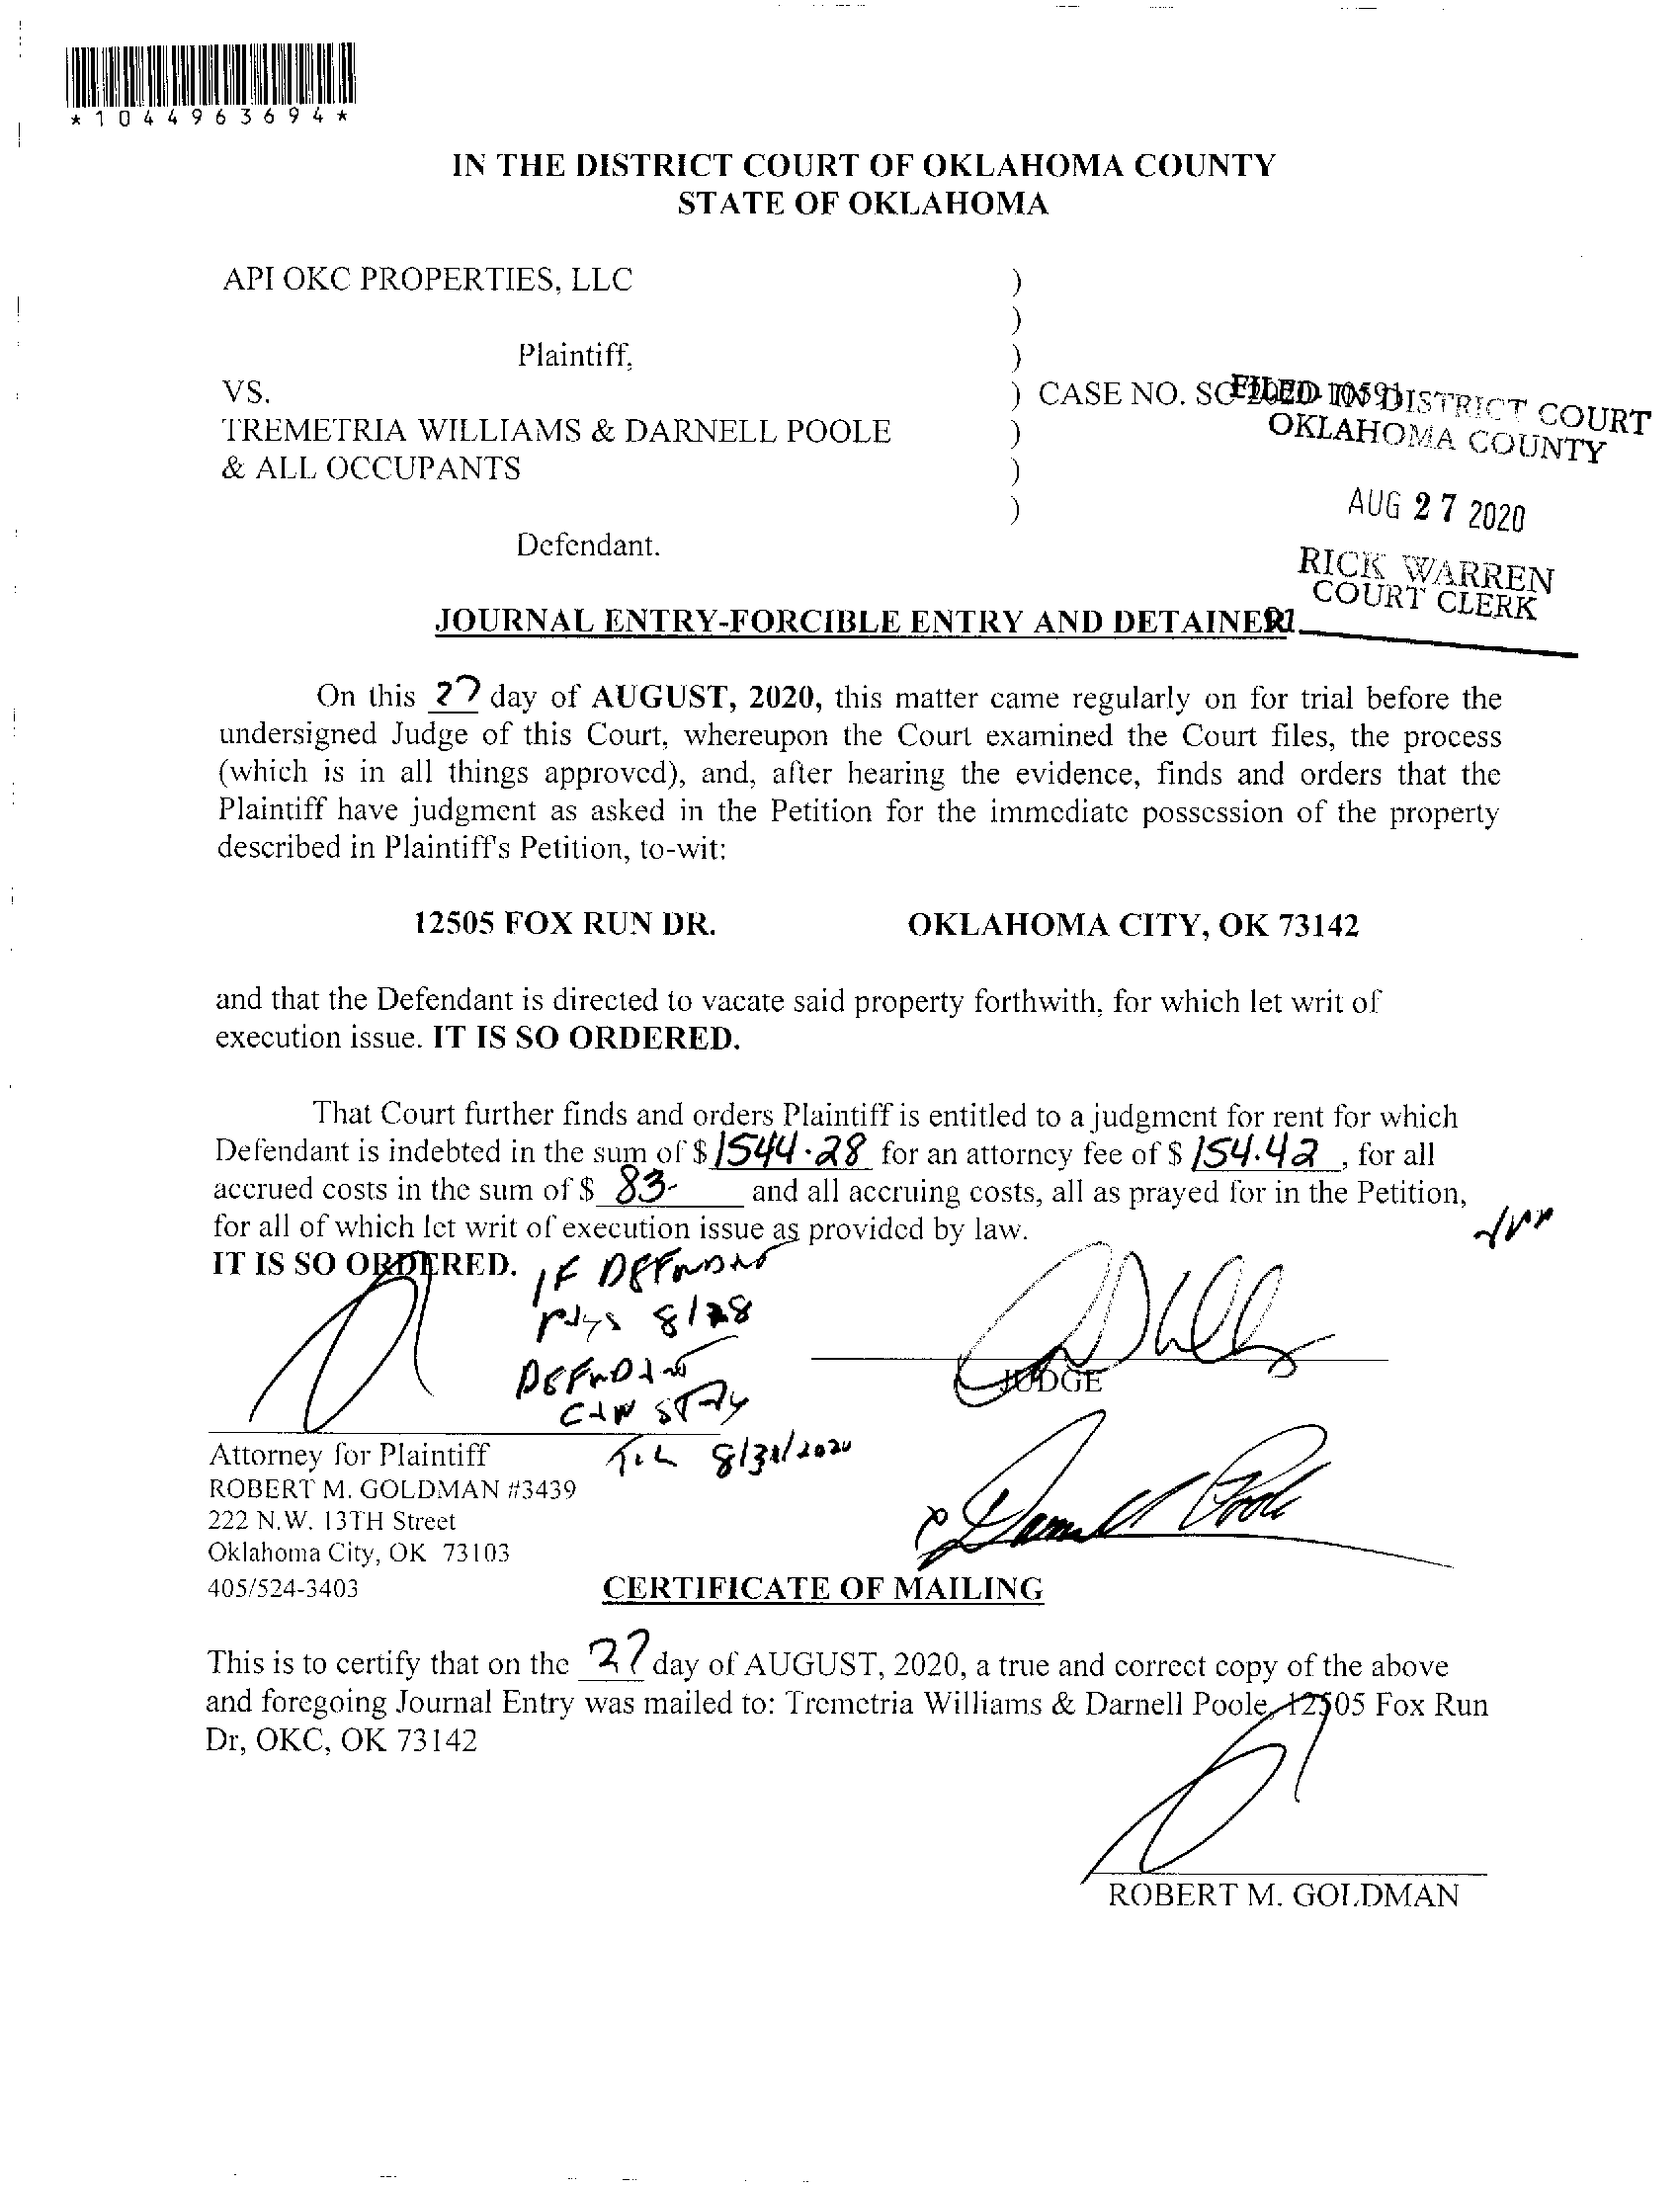 *1044963694*
IN THE DISTRICT COURT OF OKLAHOMA COUNTY
STATE OF OKLAHOMA
API OKC PROPERTIES, LLC )
)
Plaintiff, )
VS. ) CASE NO. SC-2020-10591
FILED IN DISTRICT COURT
TREMETRIA WILLIAMS & DARNELL POOLE )
OKLAHOMA COUNTY
& ALL OCCUPANTS )
)
AUG 27 2020
Defendant.
RICK WARREN
COURT CLERK
JOURNAL ENTRY-FORCIBLE ENTRY AND DETAINER
On this 27 day of AUGUST, 2020, this matter came regularly on for trial before the
undersigned Judge of this Court, whereupon the Court examined the Court files, the process
(which is in all things approved), and, after hearing the evidence, finds and orders that the
Plaintiff have judgment as asked in the Petition for the immediate possession of the property
described in Plaintiff's Petition, to-wit:
12505 FOX RUN DR. OKLAHOMA CITY, OK 73142
and that the Defendant is directed to vacate said property forthwith, for which let writ of
execution issue. IT IS SO ORDERED.
That Court further finds and orders Plaintiff is entitled to a judgment for rent for which
Defendant is indebted in the sum of $ 1544.28 for an attorney fee of $ 154.42, for all
accrued costs in the sum of $ 83- and all accruing costs, all as prayed for in the Petition,
for all of which let writ of execution issue as provided by law.
IT IS SO ORDERED.
IF DEFENDANT
PAYS 8/28
DEFENDANT
CAN STAY
JUDGE
TIL 8/31/2020
Attorney for Plaintiff
ROBERT M. GOLDMAN #3439
222 N.W. 13TH Street
x Darnell Poole
Oklahoma City, OK 73103
405/524-3403
CERTIFICATE OF MAILING
This is to certify that on the 27 day of AUGUST, 2020, a true and correct copy of the above
and foregoing Journal Entry was mailed to: Tremetria Williams & Darnell Poole, 12505 Fox Run
Dr, OKC, OK 73142
ROBERT M. GOLDMAN